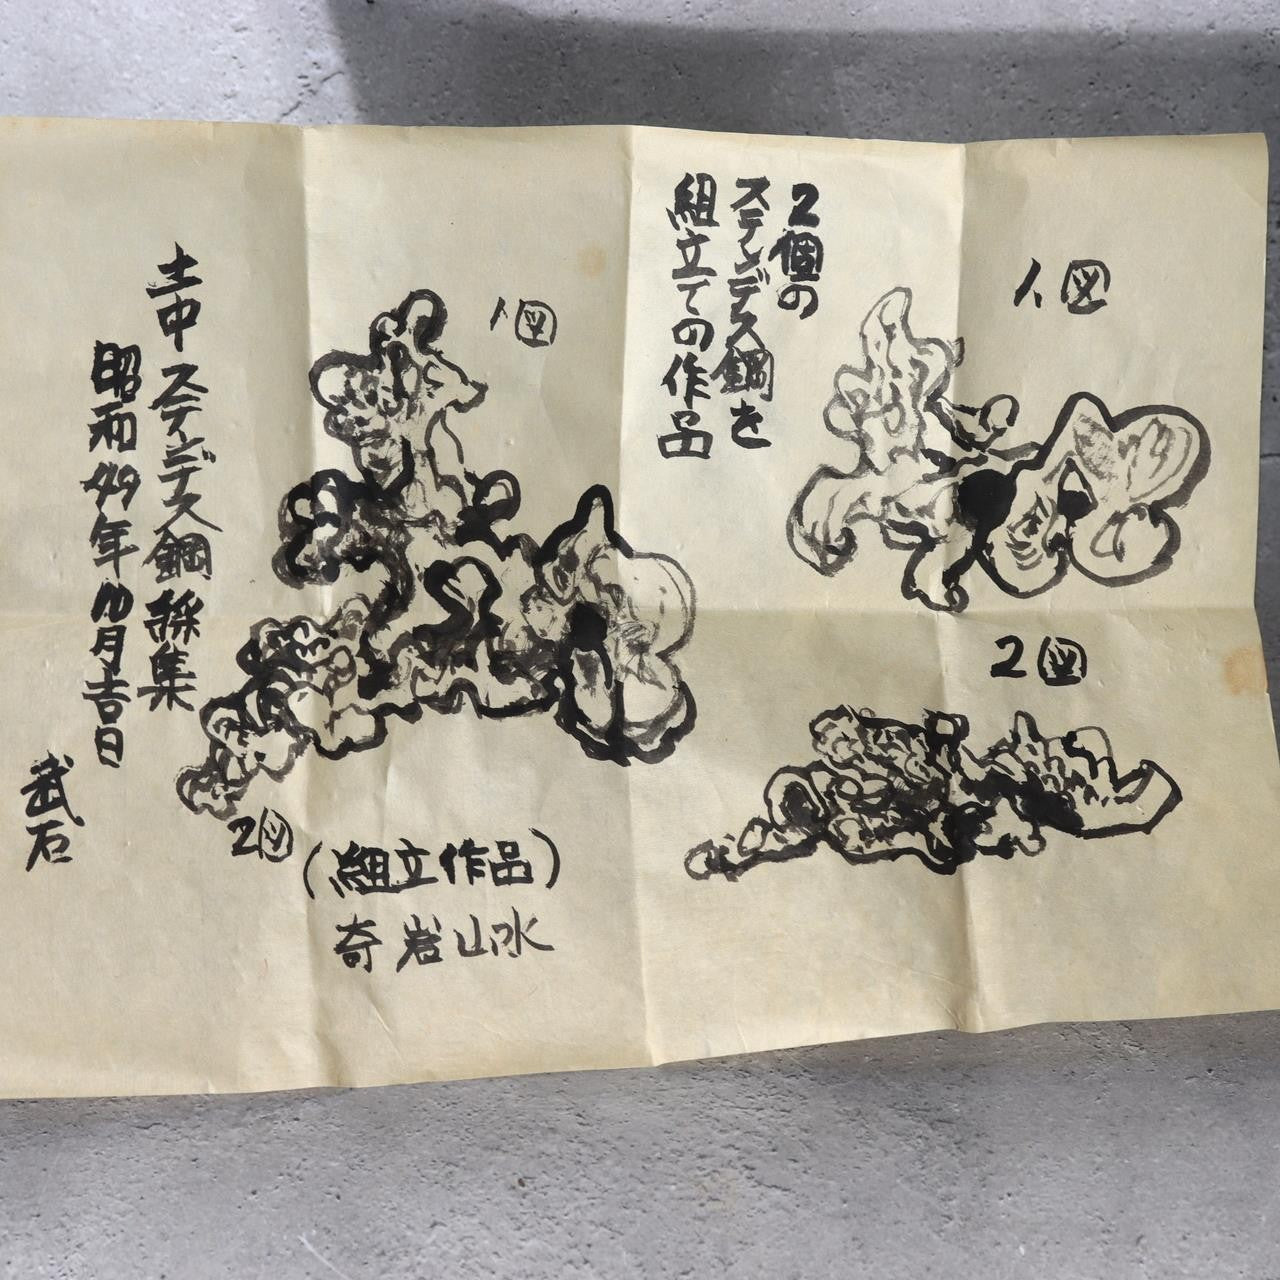 1図
2個の
ステンデス鋼を
組立ての作品
2図
1図
2図
(組立作品)
奇岩山水
土中ステンデス鋼採集
昭和49年10月吉日
武石